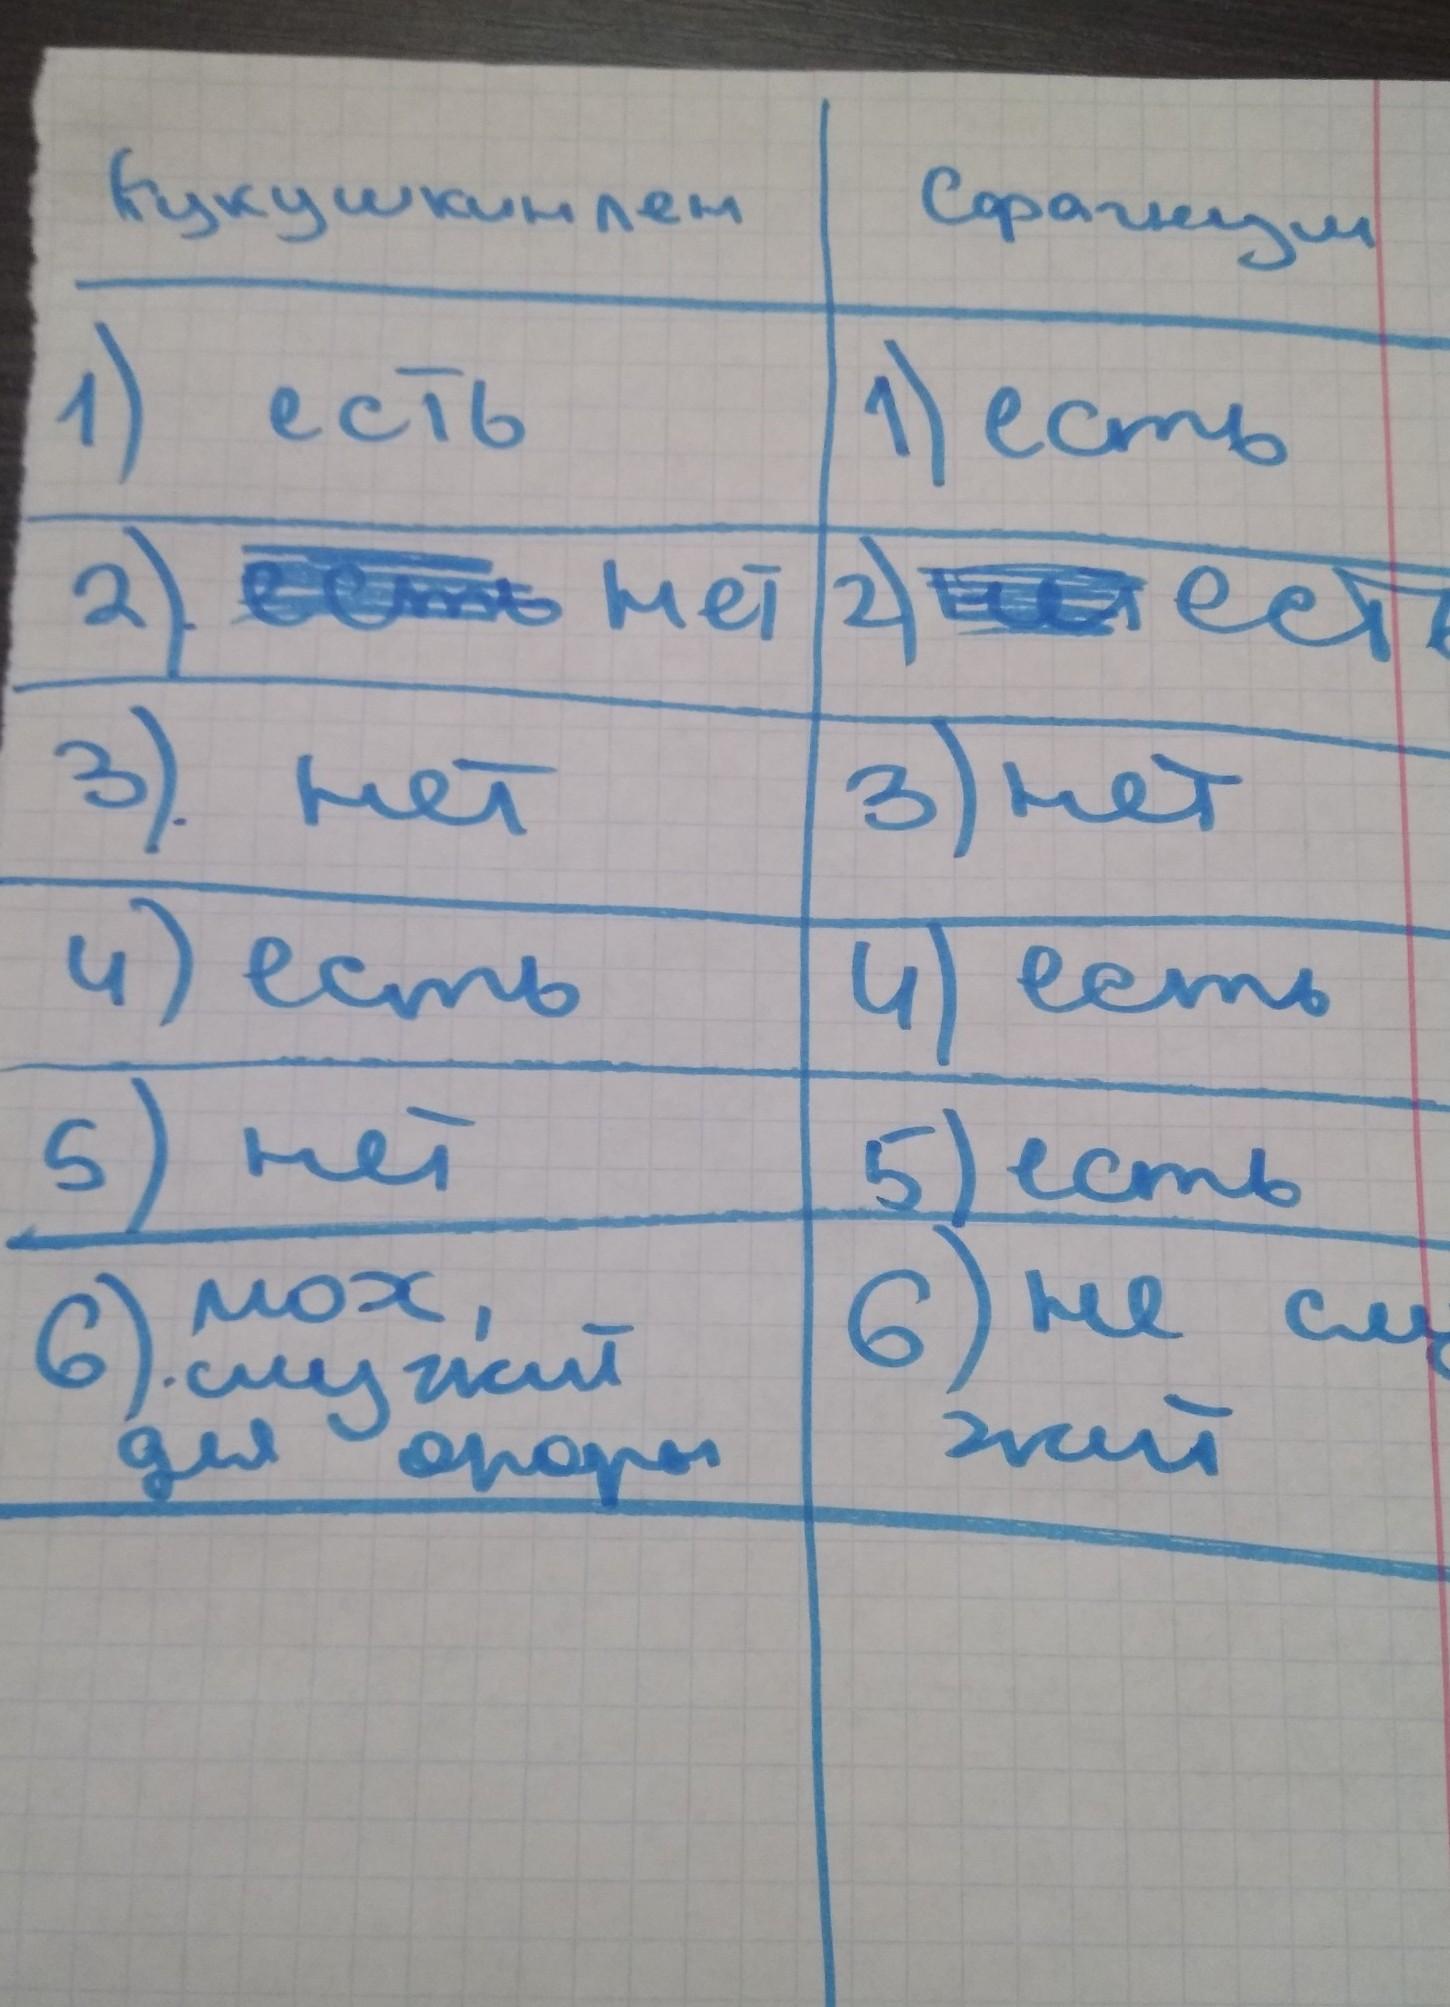 Кукушкин лен Сфагнум
1) есть 1) есть
2). нет 2) есть
3). нет 3) нет
4) есть 4) есть
5) нет 5) есть
6). мох, 6) не слу
служит жит
для опоры